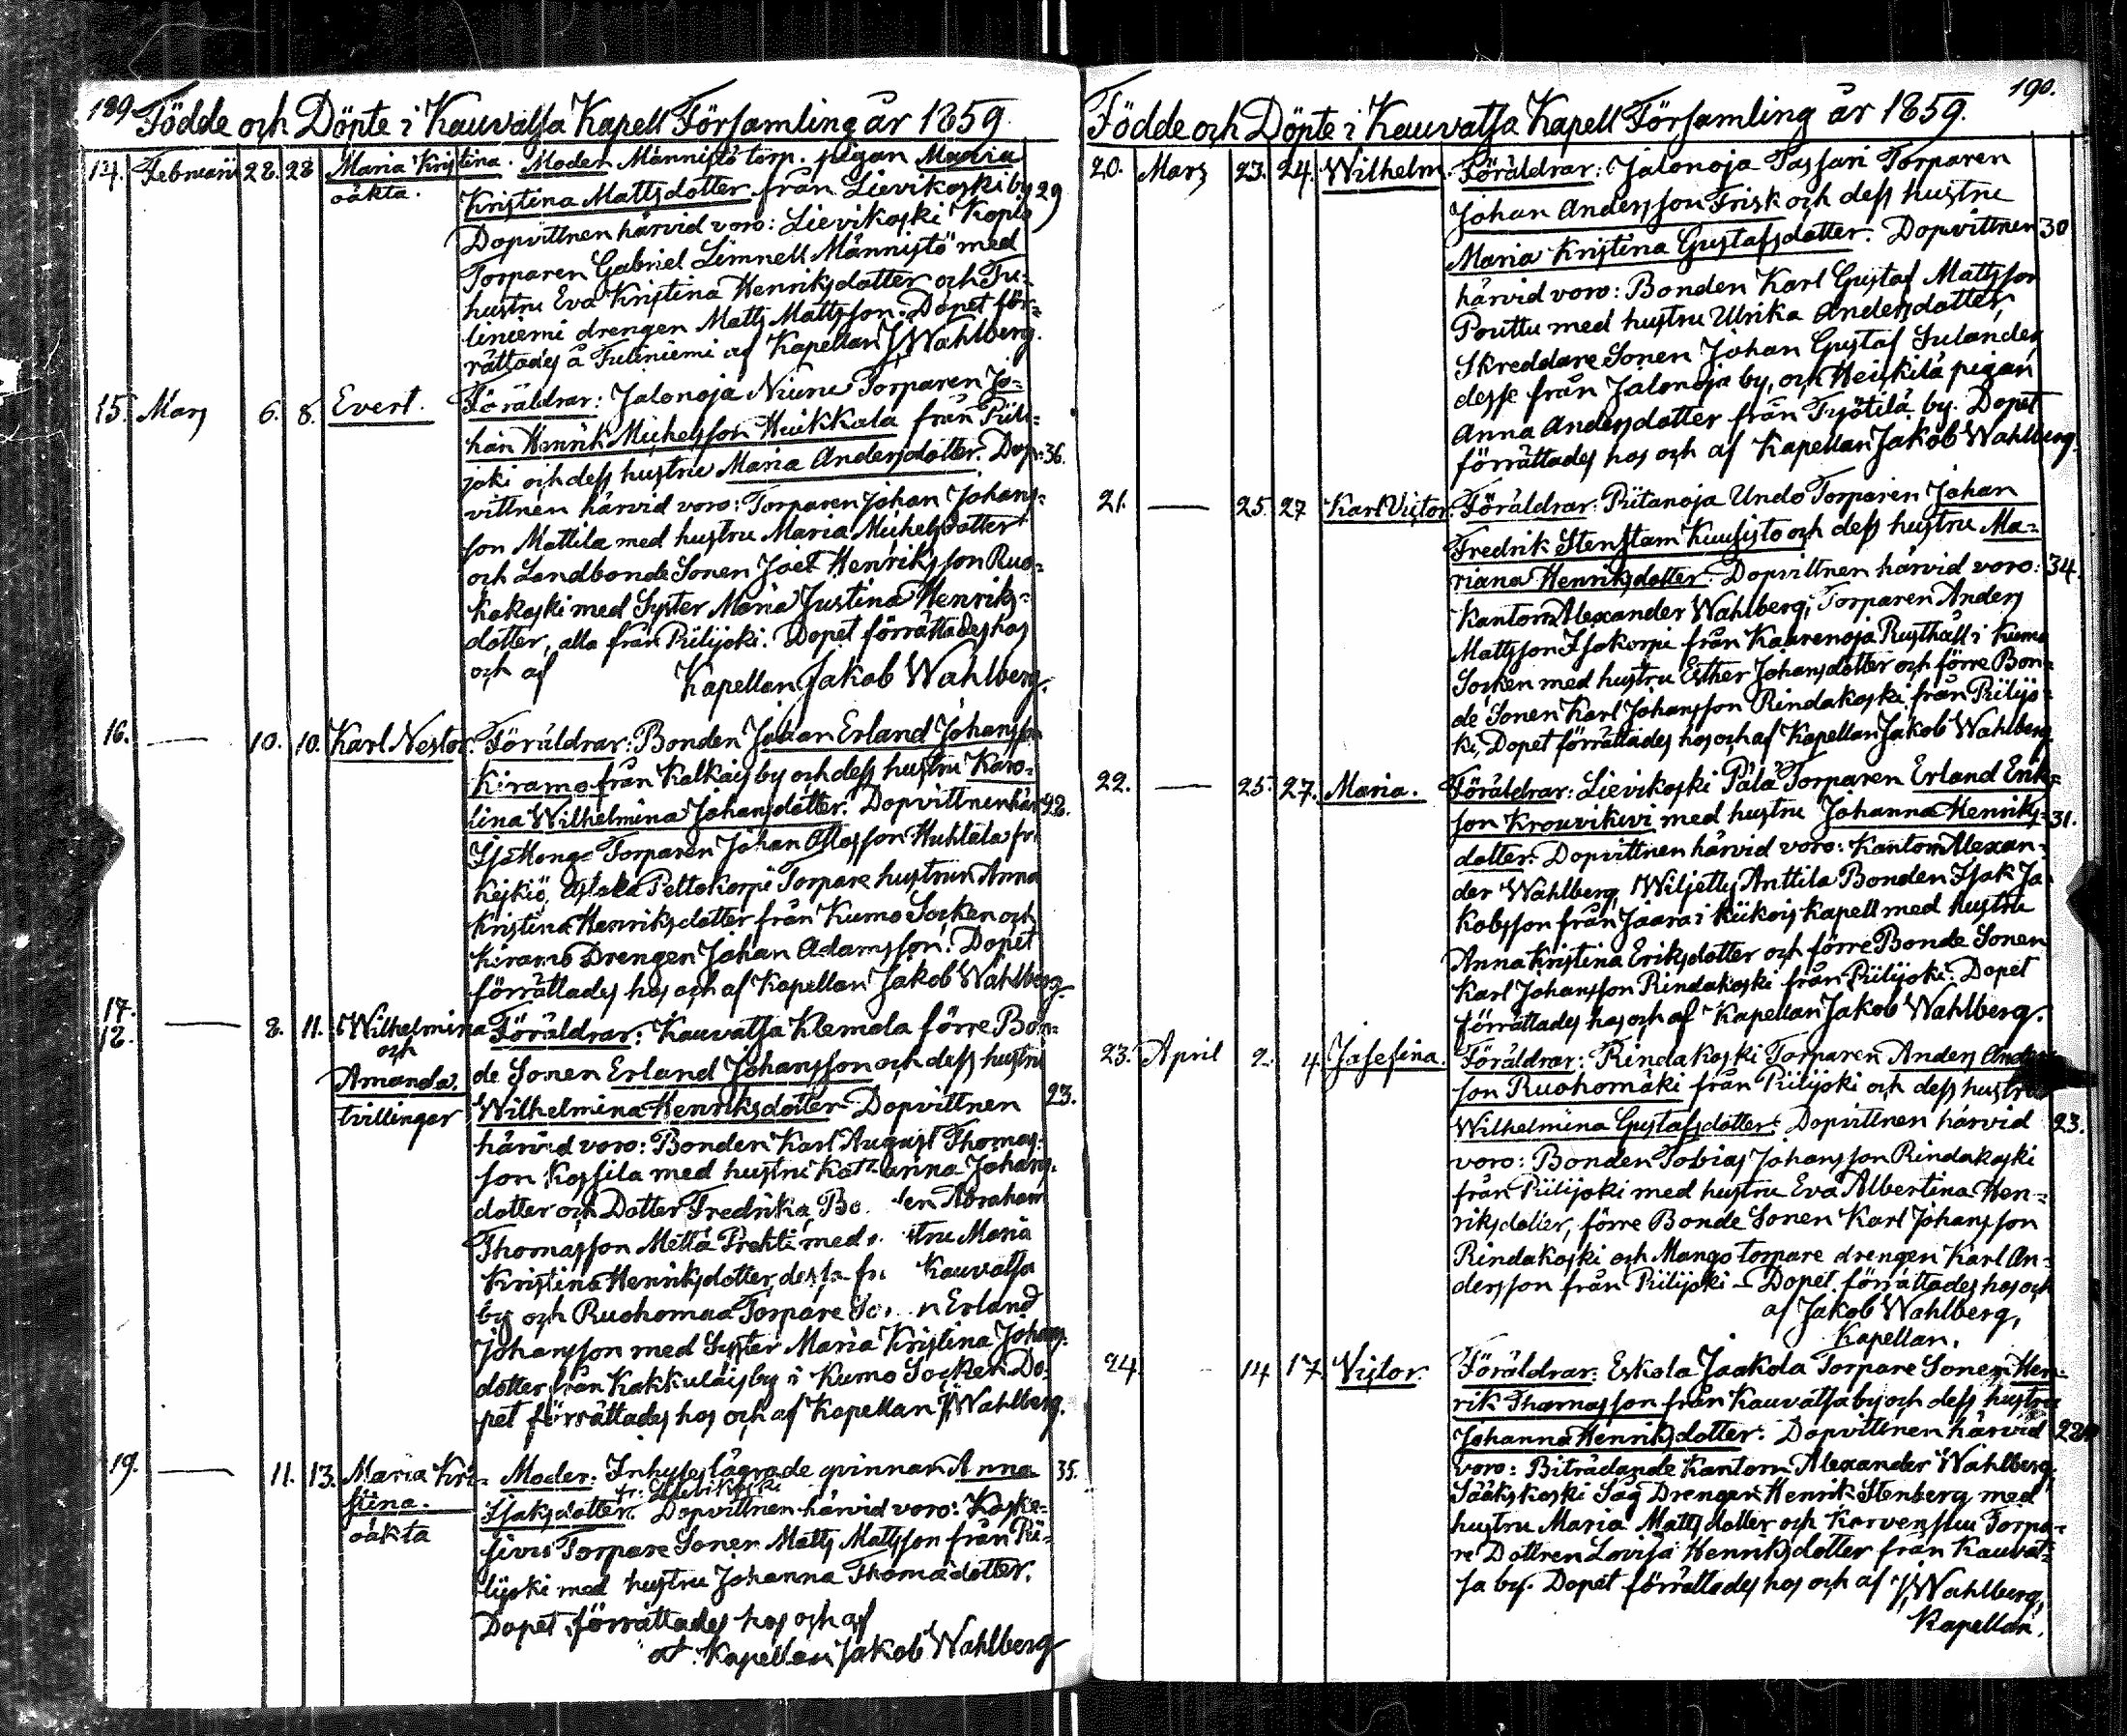 189. Födde och Döpte i Kauvatsa Kapell Församling år 1859.
14. Februari 28. 28 Maria Kristina. Moder Männistö torp. pigan Maria
oäkta. Kristina Mattsdotter från Lievikoski by 29
Dopvittnen härvid voro: Lievikoski
Torparen Gabriel Limnell Männistö med
hustru Eva Kristina Henriksdotter och Tu-
liniemi drengen Matts Mattsson. Dopet för-
rättades å Tuliniemi af Kapellan J. Wahlberg.
15. Mars 6. 8. Evert. Föräldrar: Jalonoja Niune Torparen Jo-
han Henrik Michelsson Huikkala från Piili-
joki och dess hustru Maria Andersdotter. Dop- 36.
vittnen härvid voro: Torparen Johan Johans-
son Mattila med hustru Maria Michelsdotter
och Landbonde Sonen Joel Henriksson Ruo-
kakoski med Syster Maria Justina Henriks-
dotter, alla från Piilijoki. Dopet förrättades hos
och af Kapellan Jakob Wahlberg.
16. — 10. 10. Karl Nestor. Föräldrar: Bonden Johan Erland Johansson
Kiramo från Kalkais by och dess hustru Karo-
lina Wilhelmina Johansdotter. Dopvittnen här 22.
Torparen Johan Huhtala fr.
Peltokorpi Torpare hustrun Anna
Kristina Henriksdotter från Kumo Socken och
Kiramo Drengen Johan Adamsson. Dopet
förrättades hos och af Kapellan Jakob Wahlberg.
17.
18. — 8. 11. Wilhelmina Föräldrar: Kauvatsa Klemola förre Bon-
och
Amanda. de Sonen Erland Johansson och dess hustru
tvillingar Wilhelmina Henriksdotter. Dopvittnen 23.
härvid voro: Bonden Karl August Thomas-
son Kossila med hustru Katharina Johans-
dotter och Dotter Fredrika, Bo den Abraham
Thomasson Mettä Prehti med stru Maria
Kristina Henriksdotter, dessa fr Kauvatsa
by och Ruohomaa Torpare So n Erland
Johansson med Syster Maria Kristina Johans-
dotter från Kakkulais by i Kumo Socken. Do-
pet förrättades hos och af Kapellan J. Wahlberg.
19. — 11. 13. Maria Kri- Moder: Inhyses lägrade qvinnan Anna 35.
fr. Lievikoski
stina. Isaksdotter. Dopvittnen härvid voro: Koske-
oäkta sivu Torpare Sonen Matts Mattsson från Pii-
lijoki med hustru Johanna Thomadotter.
Dopet förrättades hos och af
Kapellan Jakob Wahlberg
190.
Födde och Döpte i Kauvatsa Kapell Församling år 1859.
20. Mars 23. 24. Wilhelm. Föräldrar: Jalonoja Tassari Torparen
Johan Andersson Frisk och dess hustru
Maria Kristina Gustafsdotter. Dopvittnen 30
härvid voro: Bonden Karl Gustaf Mattsson
Pouttu med hustru Ulrika Andersdotter,
Skreddare Sonen Johan Gustaf Sulander
desse från Jalonoja by, och Heikkilä pigan
Anna Andersdotter från Työtilä by. Dopet
förrättades hos och af Kapellan Jakob Wahlberg.
21. — 25. 27 Karl Victor. Föräldrar: Piitanoja Undo Torparen Johan
Fredrik Stenstam Kuusisto och dess hustru Ma-
riana Henriksdotter. Dopvittnen härvid voro: 34.
Kantorn Alexander Wahlberg, Torparen Anders
Mattsson Isokorpi från Kaarenoja Rusthåll i Kumo
Socken med hustru Esther Johansdotter och förre Bon-
de Sonen Karl Johansson Rindakoski från Piilijo-
ki. Dopet förrättades hos och af Kapellan Jakob Wahlberg.
22. — 25. 27. Maria. Föräldrar: Lievikoski Pälä Torparen Erland Eriks-
son Krouvikivi med hustru Johanna Henriks- 31.
dotter. Dopvittnen härvid voro: Kantorn Alexan-
der Wahlberg, Wiljetty Anttila Bonden Isak Ja-
kobsson från Jaara i Kiikois Kapell med hustru
Anna Kristina Eriksdotter och förre Bonde Sonen
Karl Johansson Rindakoski från Piilijoki. Dopet
förrättades hos och af Kapellan Jakob Wahlberg.
23. April 2. 4. Josefina. Föräldrar: Rindakoski Torparen Anders Anders-
son Ruohomäki från Piilijoki och dess hustru
Wilhelmina Gustafsdotter. Dopvittnen härvid 23.
voro: Bonden Tobias Johansson Rindakoski
från Piilijoki med hustru Eva Albertina Hen-
riksdotter, förre Bonde Sonen Karl Johansson
Rindakoski och Mango torpare drengen Karl An-
dersson från Piilijoki – Dopet förrättades hos och
af Jakob Wahlberg,
Kapellan.
24. – 14 17 Victor. Föräldrar: Eskola Jaakola Torpare Sonen Hen-
rik Thomasson från Kauvatsa by och dess hustru
Johanna Henriksdotter. Dopvittnen härvid 22
voro: Biträdande Kantorn Alexander Wahlberg,
Sääkskoski Såg Drengen Henrik Stenberg med
hustru Maria Mattsdotter och Karvensuu Torpa-
re Dottren Lovisa Henriksdotter från Kauvat-
sa by. Dopet förrättades hos och af J. Wahlberg,
Kapellan.